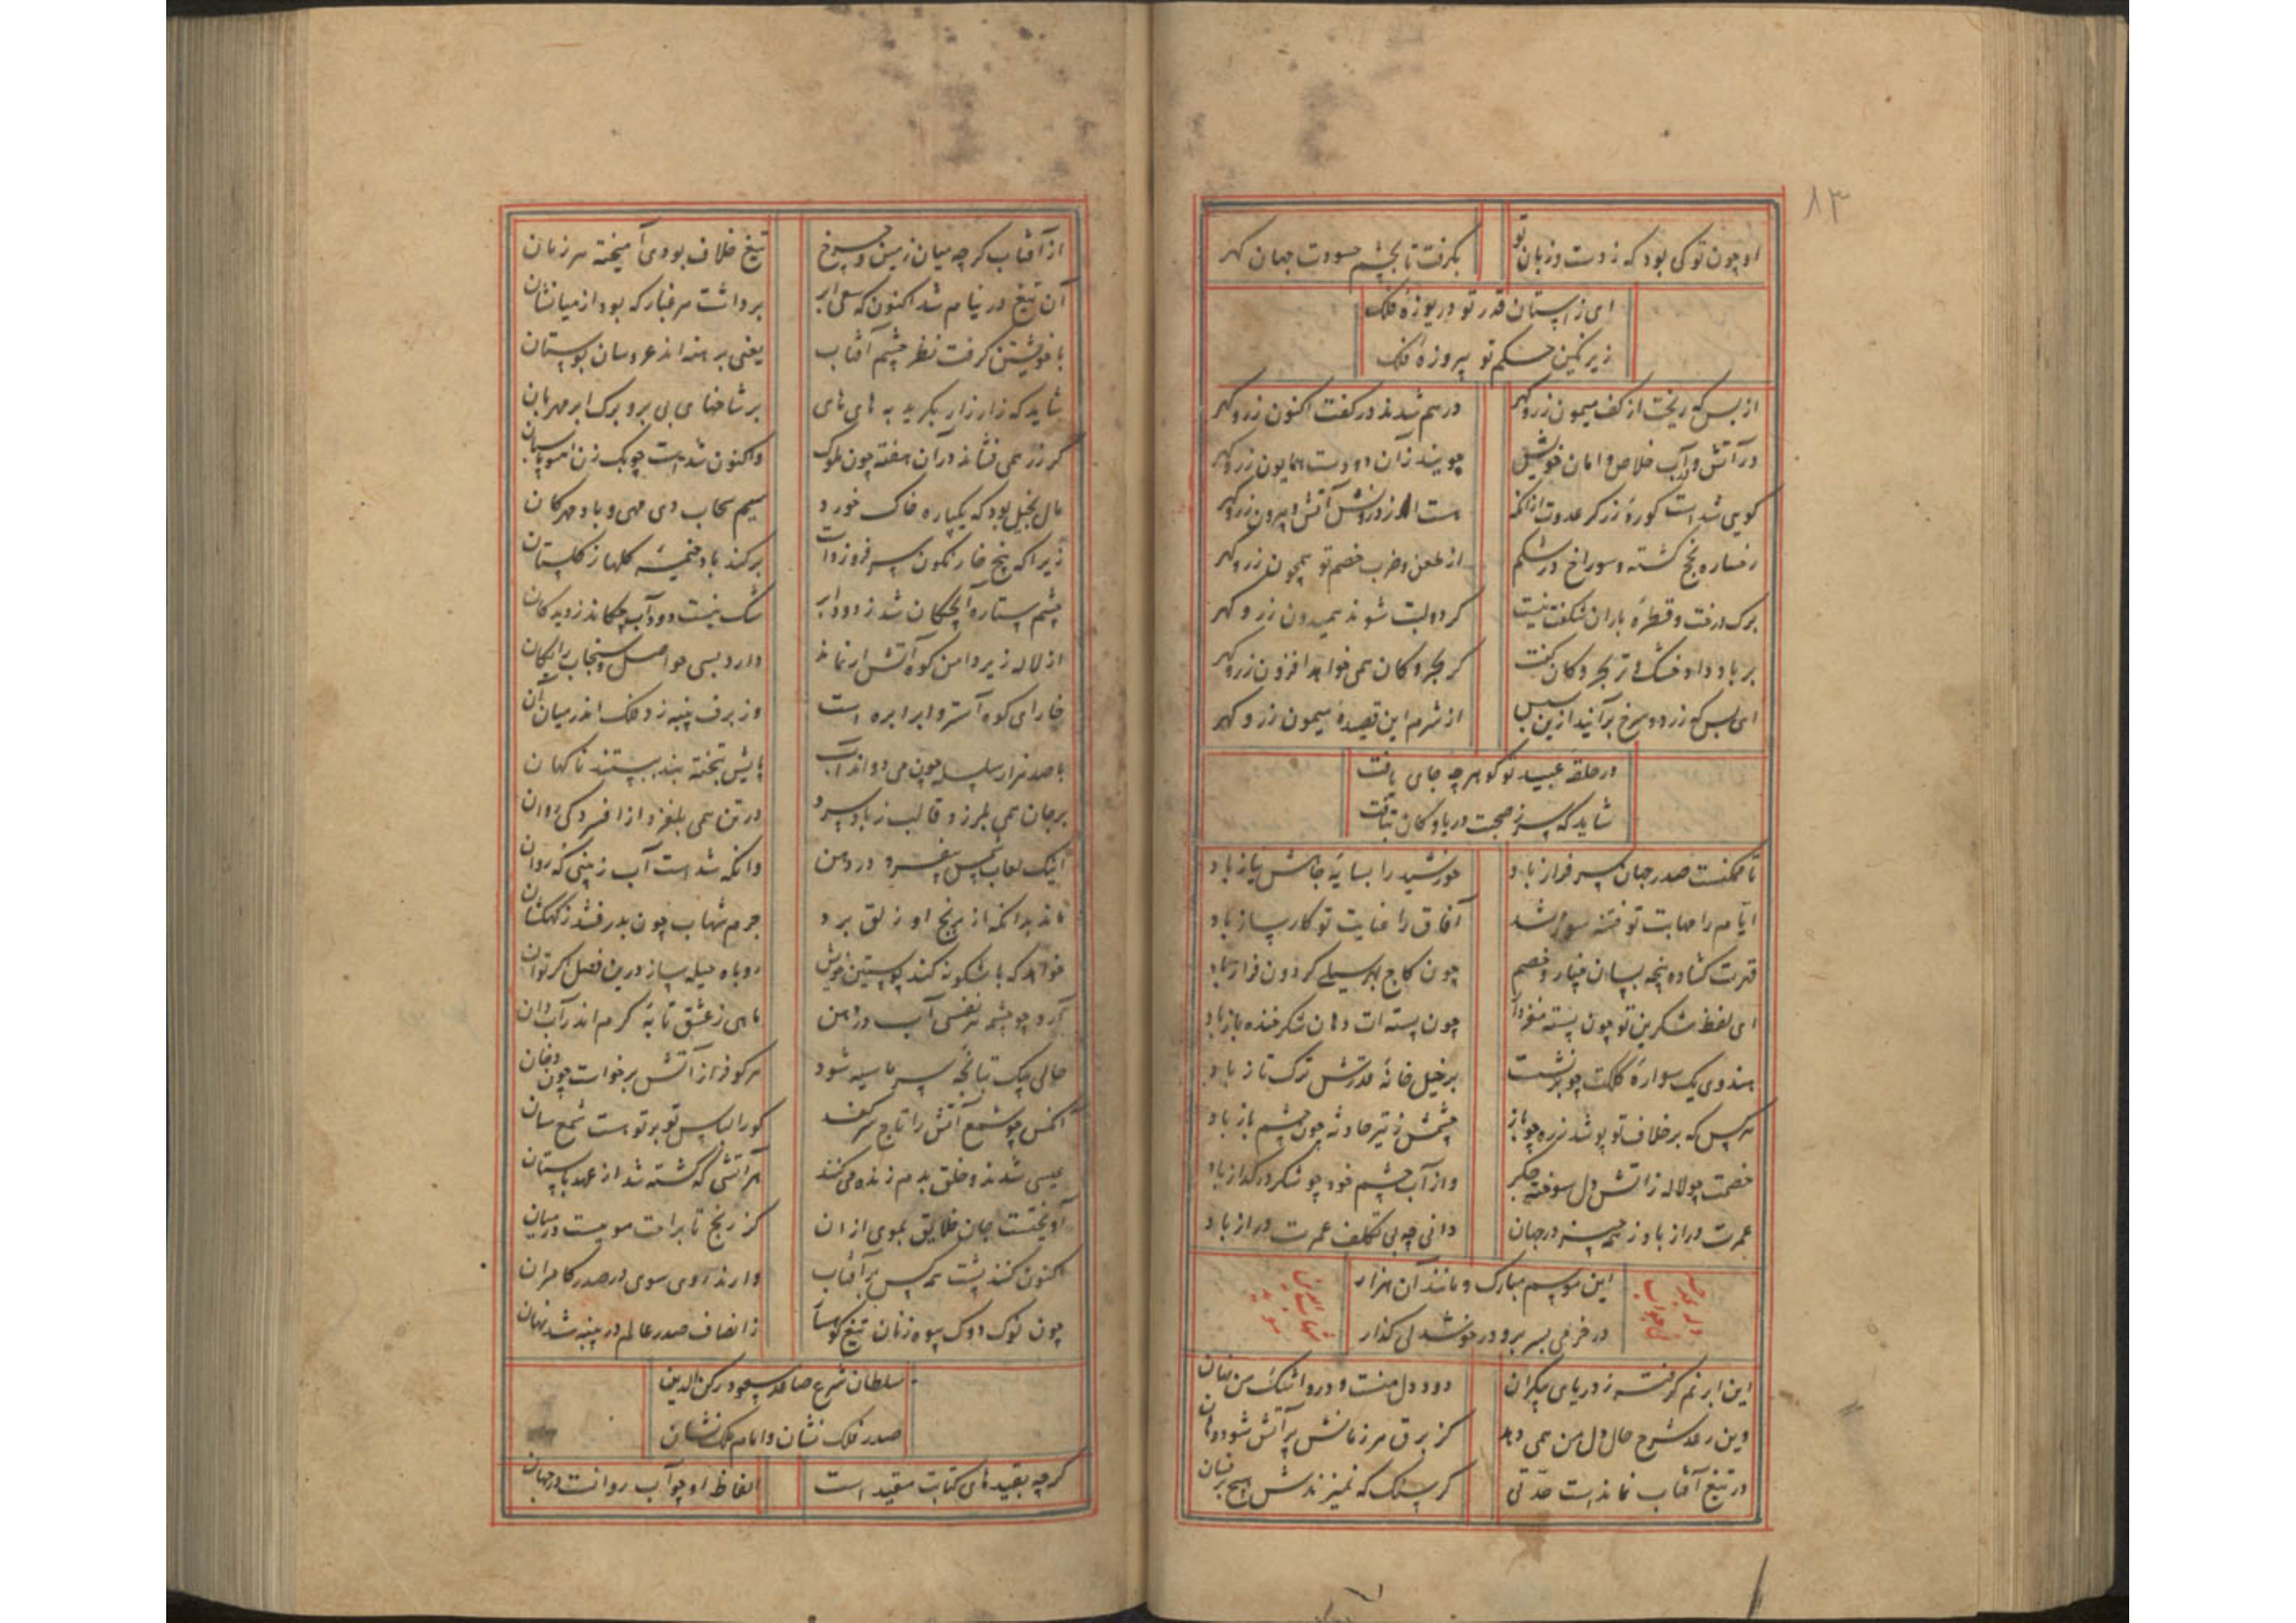 ۸۳
او چون تو کی بود که ز دست و زبان تو بگرفت تا بچشم حسودت جهان گهر
ای ز آستان قدر تو دریوزهٔ فلک
زیر نگین حکم تو پیروزهٔ فلک
از بس که ریخت از کف میمون زر و گهر درهم شدند در کفت اکنون زر و گهر
در آتش و آب خلاص و امان خویش جویند زان دو دست همایون زر و گهر
گویی شدست کورهٔ زرگر عدوت از آنکه هست اندرونش آتش و بیرون زر و گهر
رخساره نجح گشته و سوراخ در شکم از طعن و ضرب خصم تو همچون زر و گهر
برک درخت و قطرهٔ باران شکفت نیست کر دولبت شوند همیدون زر و گهر
بر باد داد خشک و تر بحر و کان کفت کر بحر و کان همی خواهد افزون زر و گهر
ای بس که زرد و سرخ برآیند ازین سپس از شرم این قصیدهٔ میمون زر و گهر
در حلقهٔ عبید تو گو هر چه جای یافت
شاید که سر ز صحبت دریا و کان بتافت
تا ممکنست صدر جهان سرفراز باد خورشید را بسایهٔ جاهش نیاز باد
ایام را مهابت تو فتنه سوز شد آفاق را عنایت تو کارساز باد
قهرت گشاده پنجه بسان چنار و خصم چون کاج بهر سیلی گردون فراز باد
ای لفظ شکرین تو چون پسته مغزدار چون پسته ات دهان شکر خنده باز باد
هندوی یک سوارهٔ کلکت چو برنشست بر خیل خانهٔ قدرتش ترک تاز باد
هر کس که بر خلاف تو پوشد زره چو باز چشمش ز تیر حادثه چون چشم باز باد
خصمت چو لاله ز آتش دل سوخته جگر واز آب چشم خود چو شکر در گداز باد
عمرت دراز باد ز همه چیز در جهان دانی چه بی تکلف عمرت دراز باد
این موسم مبارک و مانند آن هزار
در خرمی بسر بر و در خوشدلی گذار
این ابر نم گرفته ز دریای بیکران دود دل منست و درو اشک من نهان
وین رعد شرح حال دل من همی دهد کز برق هر زمانش پر آتش شود دهان
در تیغ آفتاب نماندست حدتی کر سنگ که نمیزندش هیچ بر فسان
از آفتاب کرچه میان زمین و چرخ تیغ خلاف بودی آمیخته هر زمان
آن تیغ در نیام شد اکنون که سعی ابر برداشت هر غبار که بود از میانشان
با خویشتن گرفت نظر چشم آفتاب یعنی برهنه اند عروسان بوستان
شاید که زار زار بگرید به های های بر شاخهای بی بر و برک ابر مهربان
کر زر همی فشاند در آن هفته چون ملوک واکنون شدست چوبک زن همچو پاسبان
مال بخیل بود که یکباره خاک خورد سیم سحاب دی مهی و باد مهرکان
زیرا که پنج خار نگون سر فروزدست برکند باد خیمهٔ گلها ز گلستان
چشم ستاره آبچکان شد ز دود ابر شک نیست دود آب چکاند ز دیدگان
از لاله زیر دامن کوه آتش ار نماند دارد بسی حواصل و سنجاب رایگان
خارای کوه آستر و ابر ابره است وز برف پنبه زد فلک اندر میان آن
با صد هزار سلسله چون می دواند آب پایش بتخته بند ببستند ناگهان
بر جان همی بلرزد قالب ز باد سرد در تن همی بلغزد از افسردگی روان
اینک لعاب شمس بفسرد در دهن وانکه شدست آب ز بینی که روان
ماند بدانکه از برنج او زلق برد جرم شهاب چون بدرفشد ز کهکشان
خواهد که باشکونه کند پوستین خویش روباه حیله ساز درین فصل گر توان
آرد چو چشم هر نفسی آب در دهن ماهی ز عشق تابهٔ گرم اندر آبدان
حالی بیک تپانچه سرما سیه شود هر کو فراز آتش برخاست چون دخان
آنکس چو شمع آتش را تاج سر کند کو را لباس تو بر توست شمع سان
عیسی شدند و خلق بدم زنده میکنند هر آتشی که کشته شد از عهد باستان
آویختست جان خلایق بموی از آن کز رنج تا براحت موییست در میان
اکنون کنند پشت همه کس بر آفتاب دارند روی سوی در صدر کامران
چون نوک دوک بیوه زنان تیغ کوهسار ز انصاف صدر عالم در پنبه شد نهان
سلطان شرع صاعد مسعود رکن الدین
صدر فلک نشان و امام ملک نشان
گرچه بقیدهای کتابت مقید است الفاظ او چو آب روانست در جهان